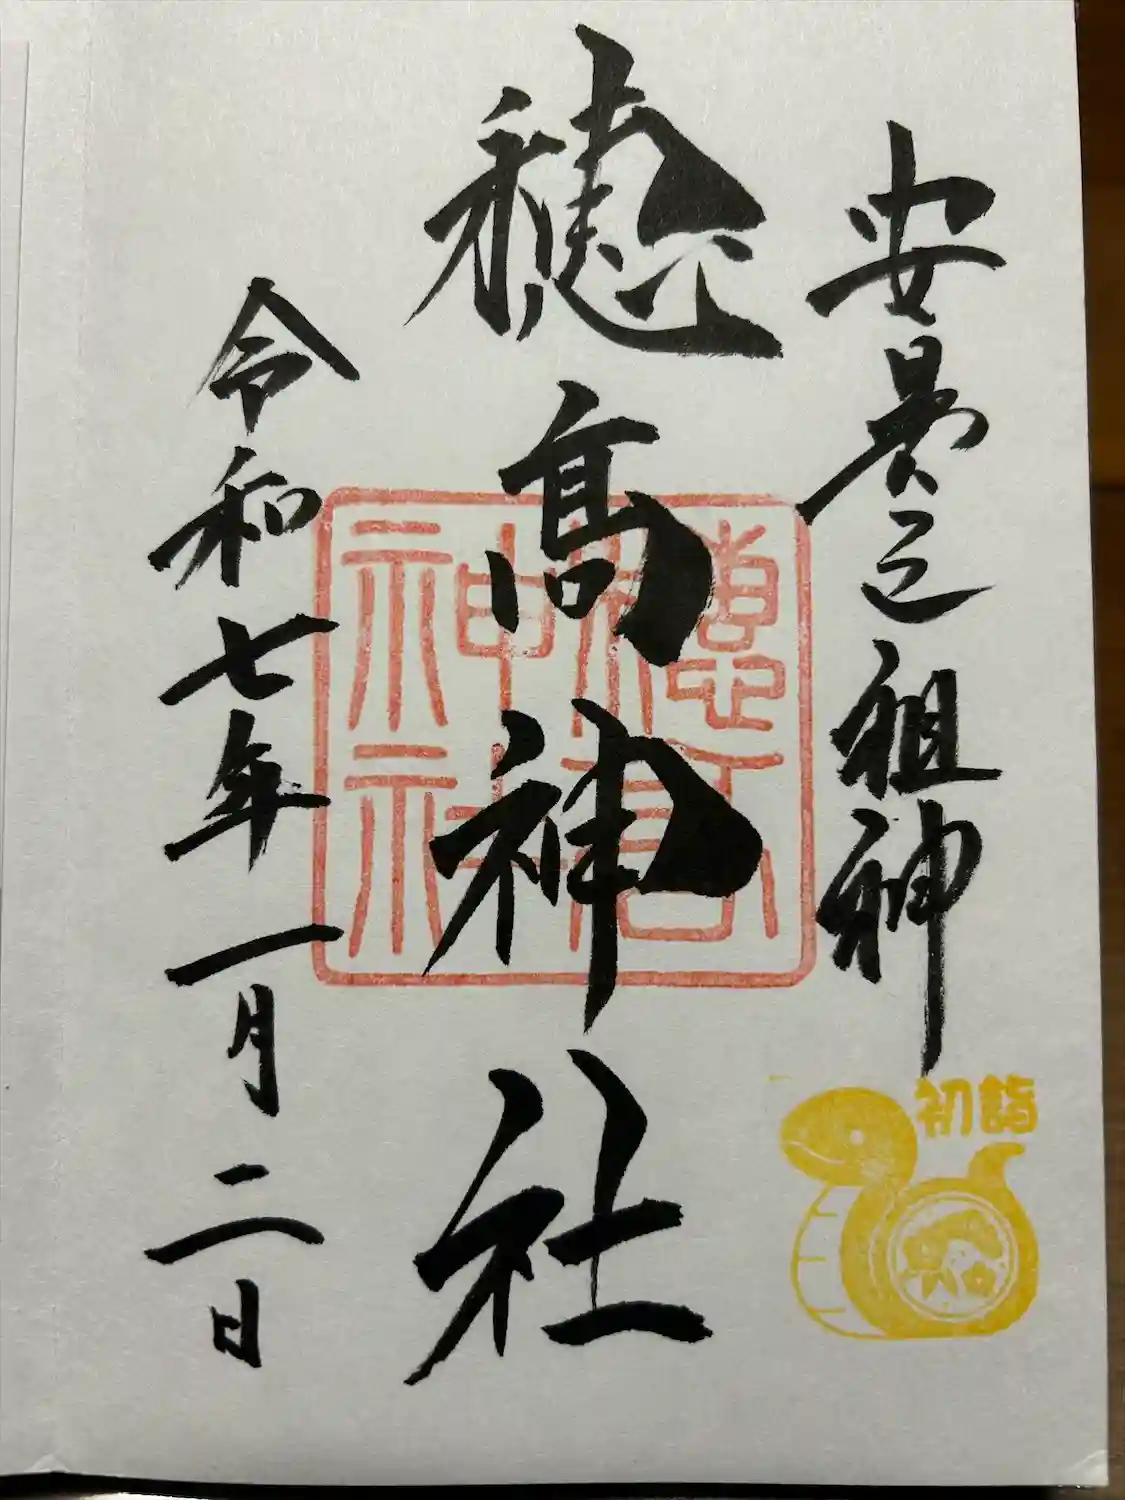 安曇之祖神
穂髙神社
令和七年一月二日
穂高
神社
初詣